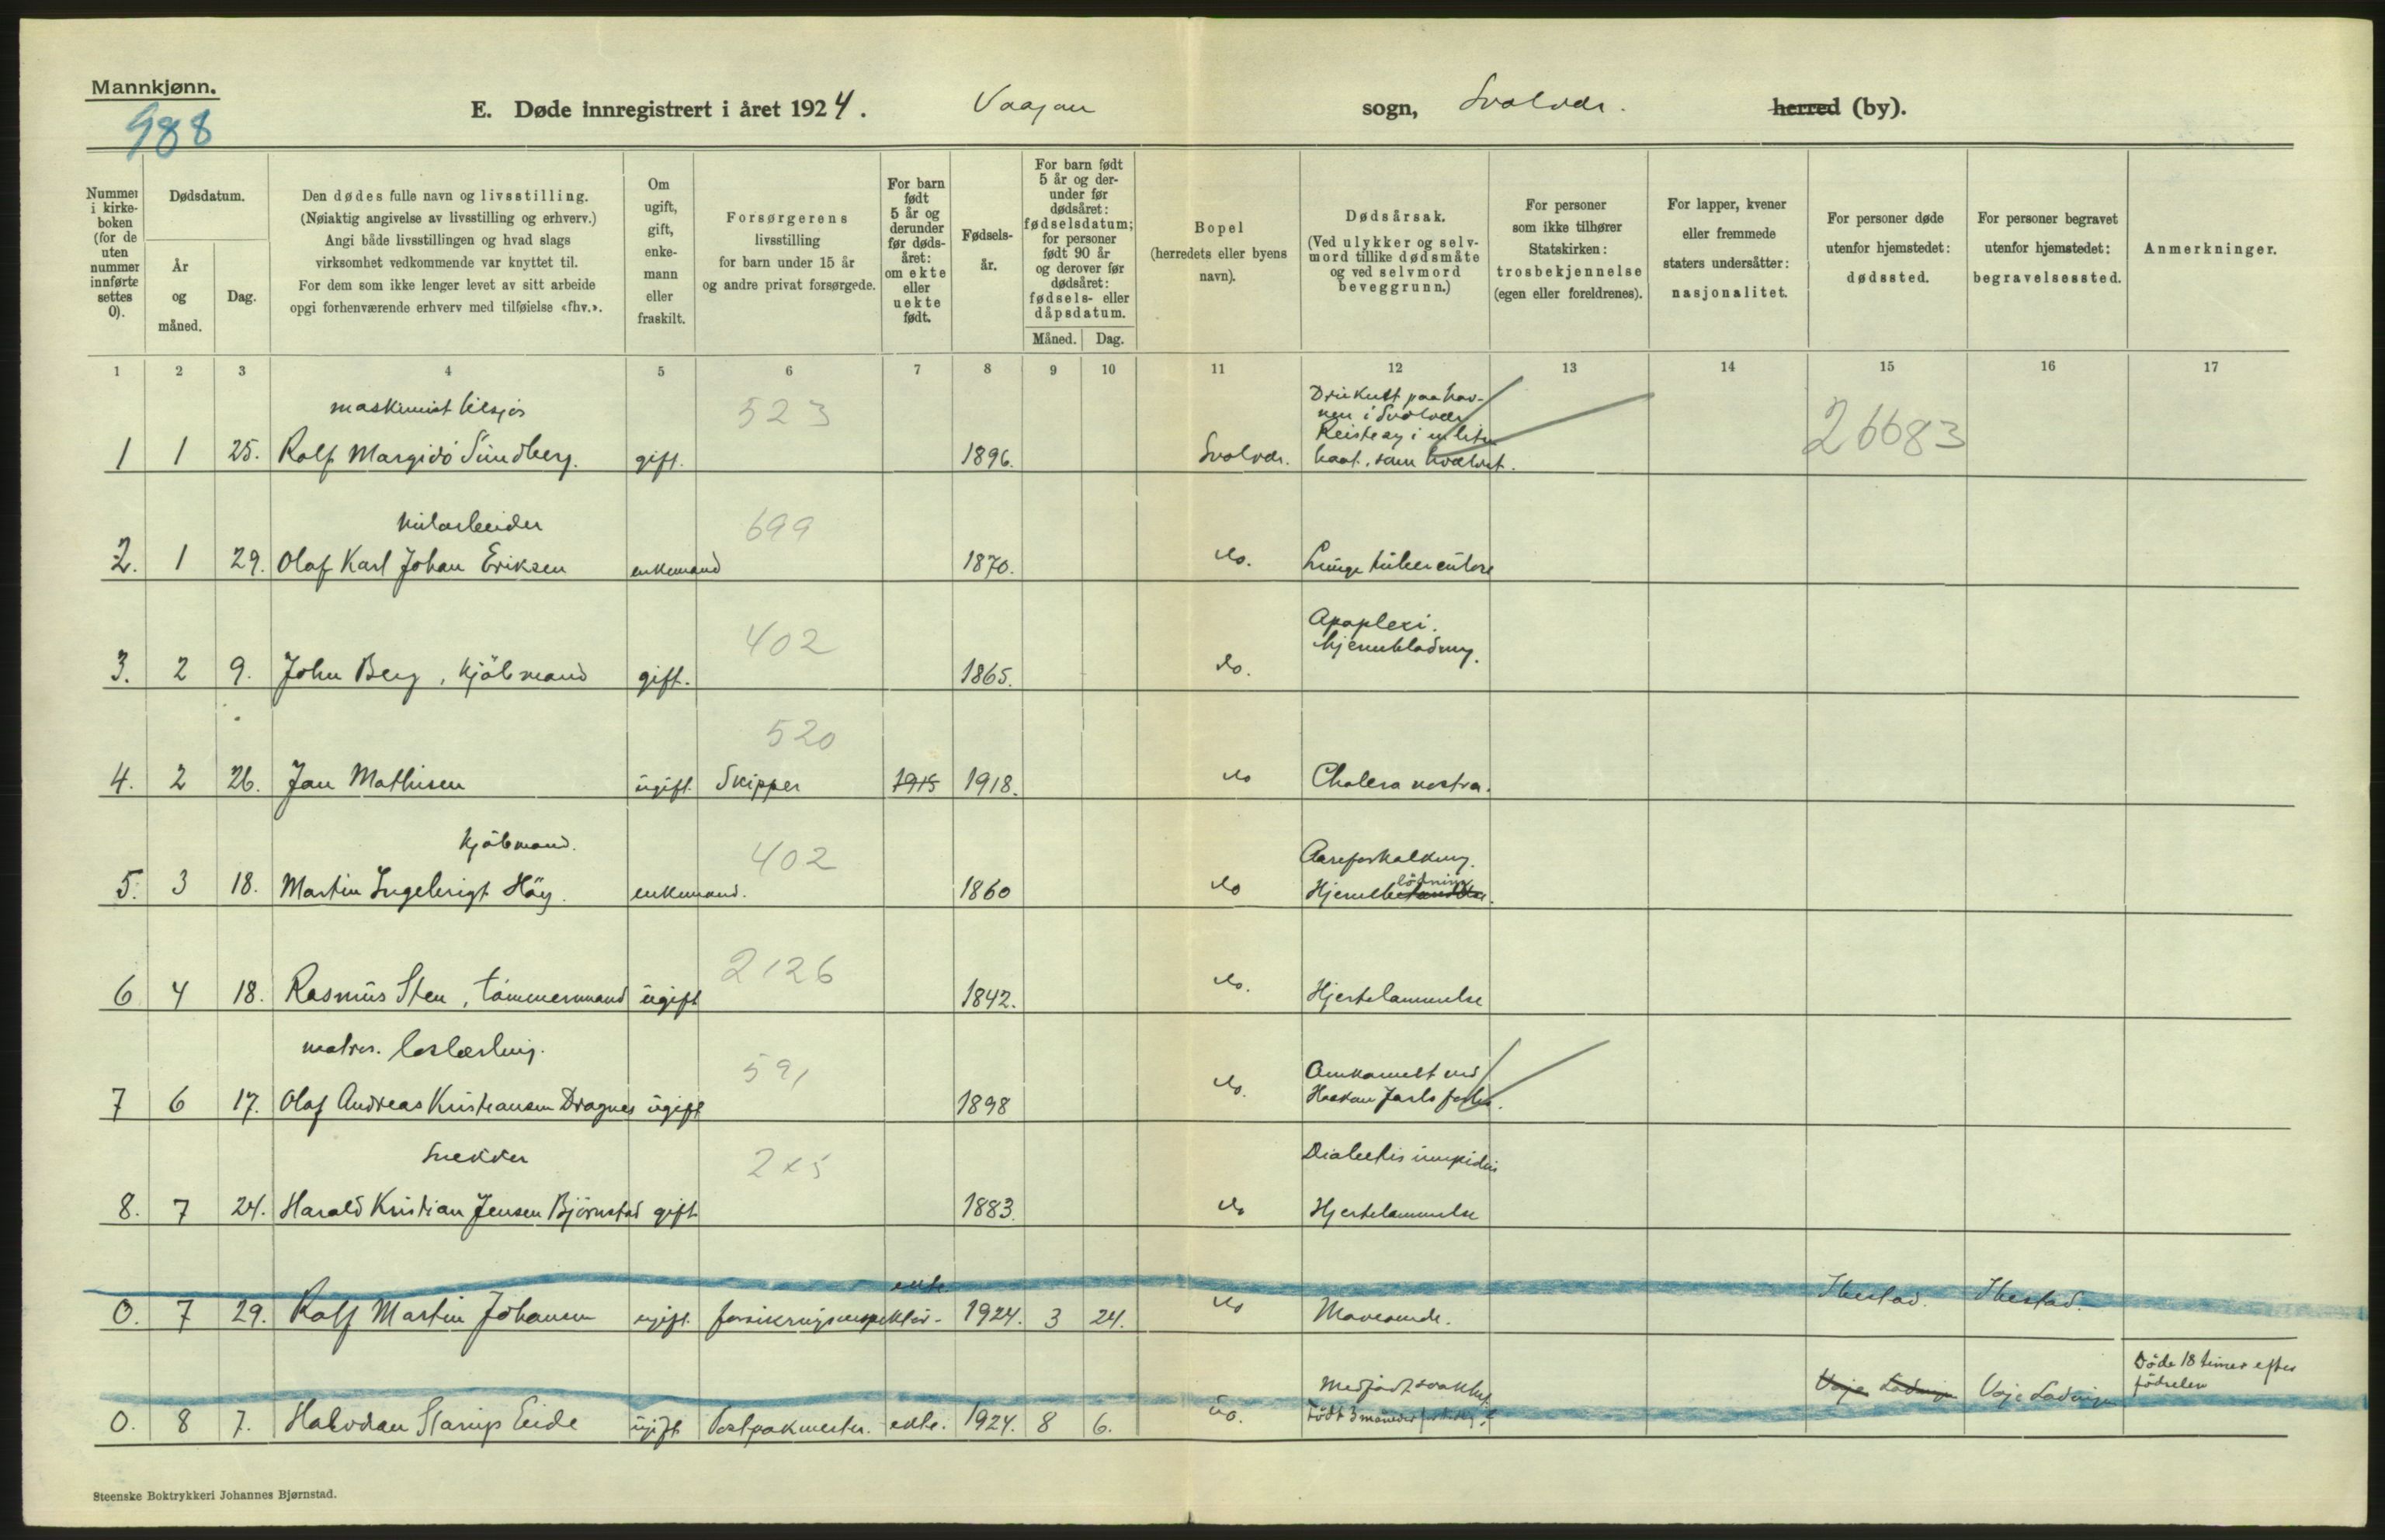 Mannkjønn.
988
E. Døde innregistrert i året 1924. Vaagan sogn, Svolvær. herred (by).
Nummer i kirkeboken (for de uten nummer innførte settes 0).
Dødsdatum.
År og måned.
Dag.
Den dødes fulle navn og livsstilling.
(Nøiaktig angivelse av livsstilling og erhverv.)
Angi både livsstillingen og hvad slags
virksomhet vedkommende var knyttet til.
For dem som ikke lenger levet av sitt arbeide
opgi forhenværende erhverv med tilføielse «fhv.».
Om ugift, gift, enkemann eller fraskilt.
Forsørgerens
livsstilling
for barn under 15 år
og andre privat forsørgede.
For barn født 5 år og derunder før dødsåret: om ekte eller uekte født.
Fødselsår.
For barn født 5 år og derunder før dødsåret: fødselsdatum; for personer født 90 år og derover før dødsåret: fødsels- eller dåpsdatum.
Måned. Dag.
Bopel
(herredets eller byens
navn).
Dødsårsak.
(Ved ulykker og selvmord tillike dødsmåte og ved selvmord beveggrunn.)
For personer
som ikke tilhører
Statskirken:
trosbekjennelse
(egen eller foreldrenes).
For lapper, kvener
eller fremmede
staters undersåtter:
nasjonalitet.
For personer døde
utenfor hjemstedet:
dødssted.
For personer begravet
utenfor hjemstedet:
begravelsessted.
Anmerkninger.
1 2 3 4 5 6 7 8 9 10 11 12 13 14 15 16 17
maskinist tilsjøs 523 Druknet paa havnen i Svolvær
1 1 25. Rolf Margido Sundberg. gift. 1896. Svolvær. baat, som hvælvet. 26683
699
2. 1 29. Olaf Karl Johan Eriksen enkemand 1870. do. Lungetuberculose
402 Apoplexi.
3. 2 9. John Berg, kjöbmand gift. 1865. do. hjerneblødning.
520
4. 2 26. Jan Mathisen ugift. Skipper 1915 1918. do Cholera nostra.
Kjöbmand. 402 Aareforkalkning.
5. 3 18. Martin Ingebrigt Höy. enkemand. 1860 do
2126
6 4 18. Rasmus Sten, tömmermand ugift 1842. do. Hjertelammelse
591 Omkommet ved
7 6 17. Olaf Andreas Kristiansen Dragnes ugift 1898 do. Haakan Jarls forlis.
Snekker 2x5 Diabetis insipidus
8. 7 24. Harald Kristian Jensen Björnstad gift 1883. do Hjertelammelse
ekte
0. 7 29. Rolf Martin Johansen ugift. forsikringsinspektör 1924. 3 24. do Maveonde. Ibestad. Ibestad.
Medfödt svakhet. Döde 18 timer efter
Födt 3 måneder födselen
0. 8 7. Halvdan Starup Eide ugift Postpakmester. ekte. 1924. 8 6. do.
Steenske Boktrykkeri Johannes Bjørnstad.